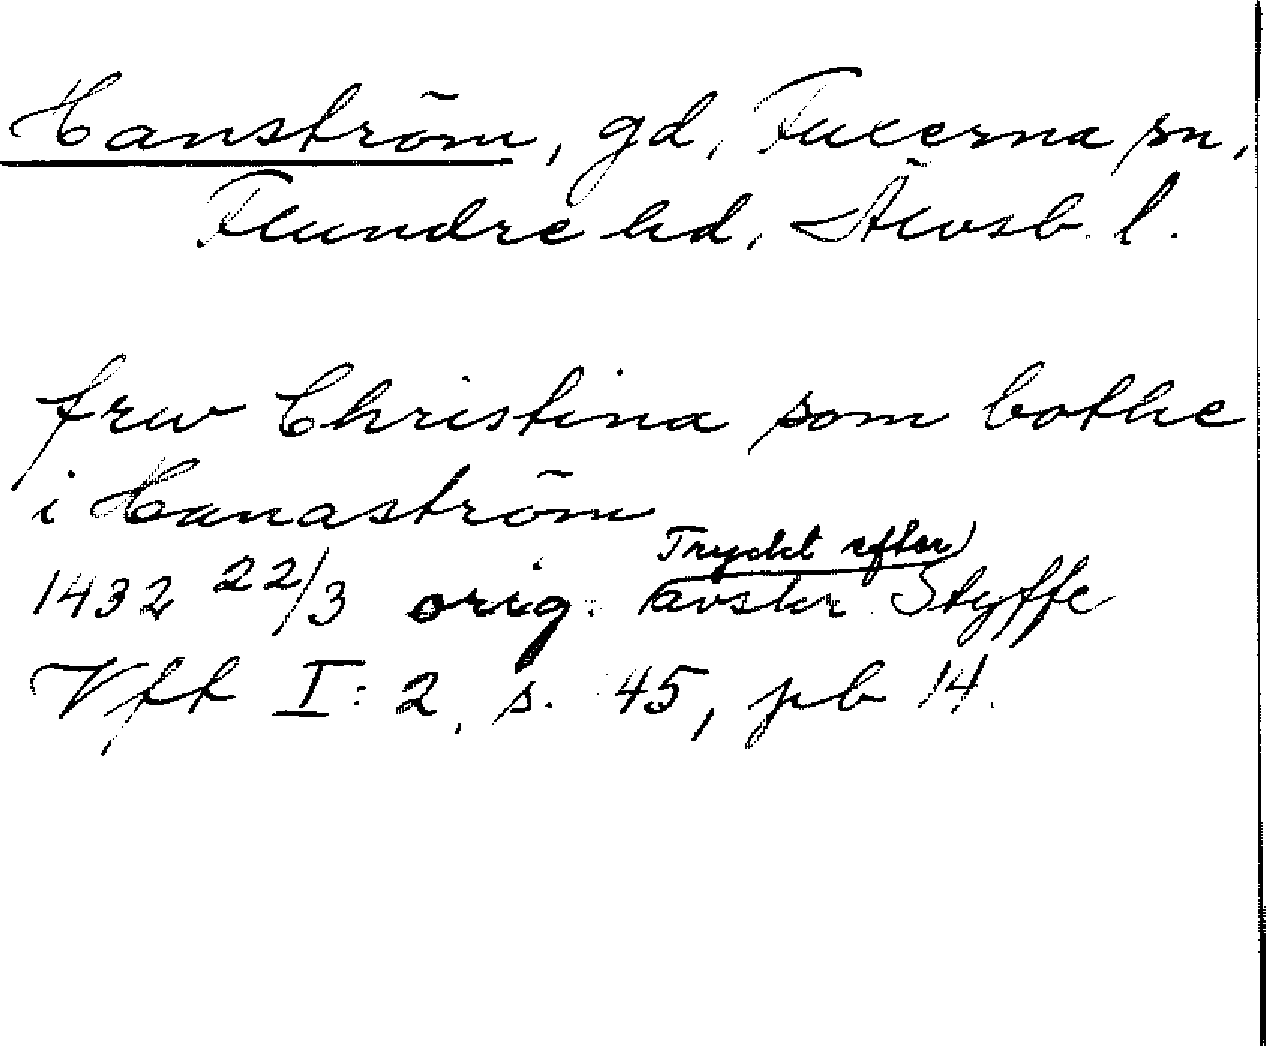 Hanström, gd, Fuxerna sn,
Flundre hd, Älvsb. l.
frw Christina som bothe
i Hanaström
Tryckt efter)
1432 22/3 orig. (avskr. Styffe
Vfft I: 2, s. 45, pb 14.